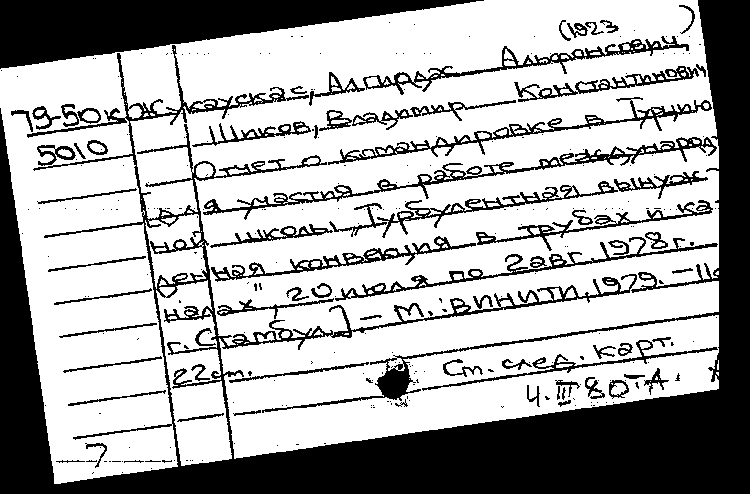 (1923 )
79-50к Жукаускас, Алгирдас Альфонсович,
5010 Шиков, Владимир Константинович
Отчет о командировке в Турцию
[для участия в работе международ-
ной школы „Турбулентная вынуж-
денная конвекция в трубах и ка-
налах", 20 июля по 2 авг. 1978 г.
г. Стамбул.] – М.: ВИНИТИ, 1979. – 11с
22 см.
Ст. след. карт.
4.III 80 ТА.
7